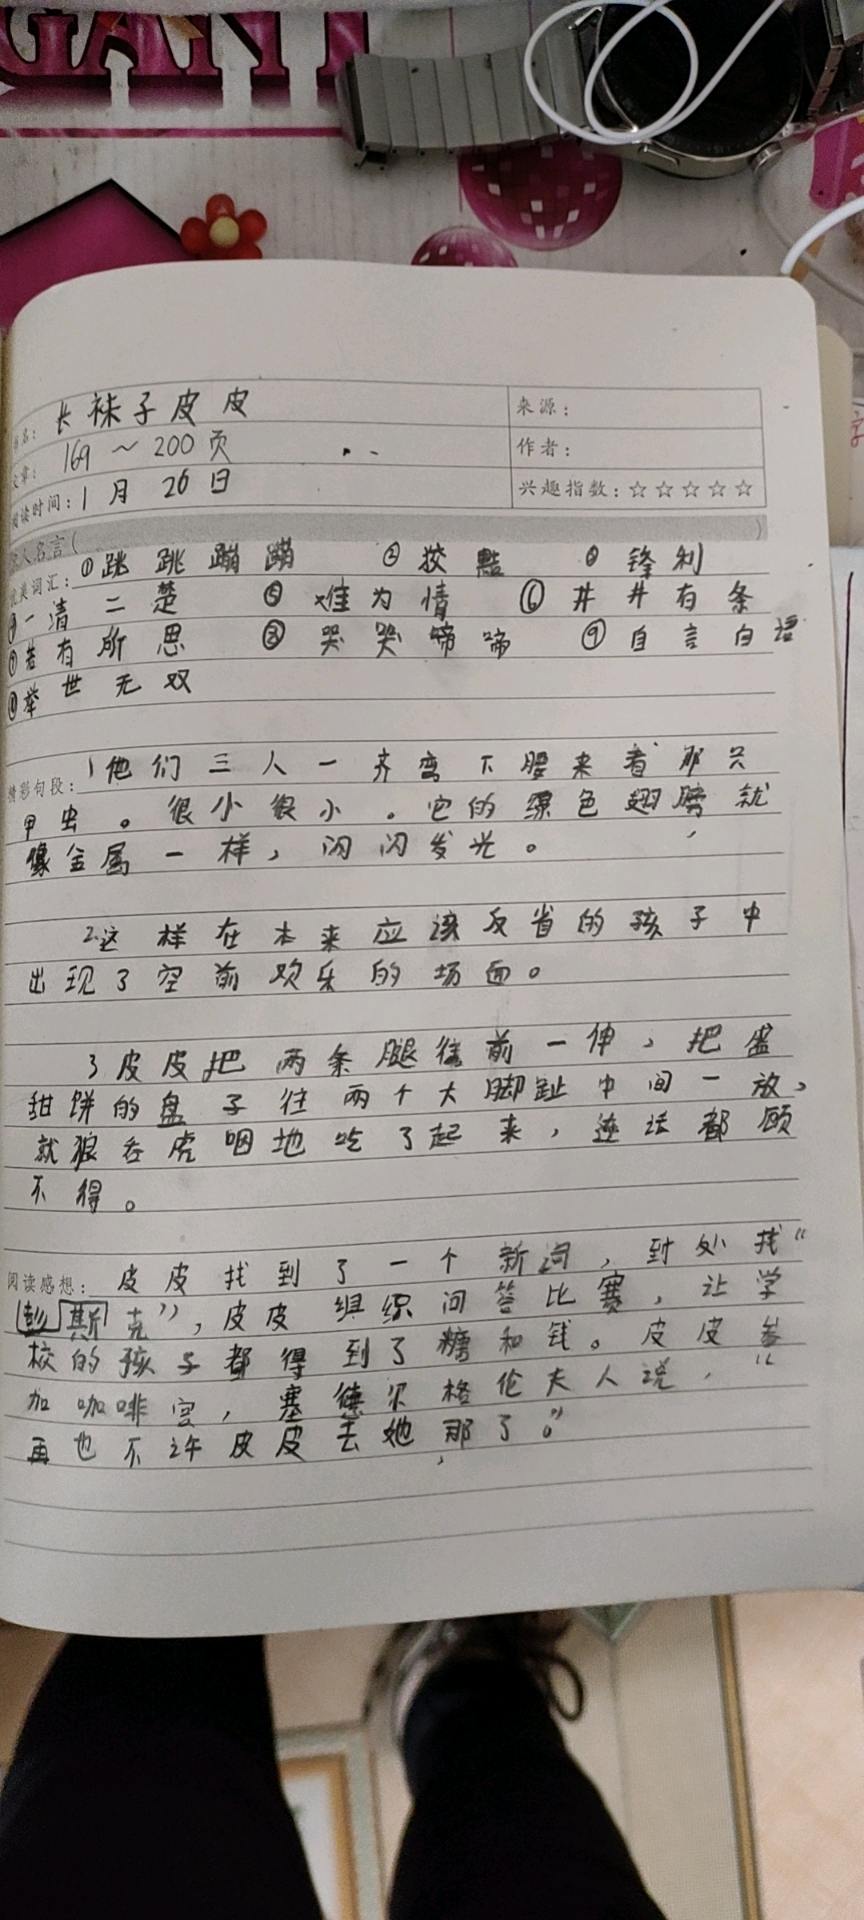 GANT
书名：长袜子皮皮
来源：
文章：169～200页
作者：
阅读时间：1月26日
兴趣指数：☆☆☆☆☆
名人名言（ ）
优美词汇：①跳跳蹦蹦 ②狡黠 ③锋利
④一清二楚 ⑤难为情 ⑥井井有条
⑦若有所思 ⑧哭哭啼啼 ⑨自言自语
⑩举世无双
精彩句段：1他们三人一齐弯下腰来看那只
甲虫。很小很小。它的绿色翅膀就
像金属一样，闪闪发光。
2.这样在本来应该反省的孩子中
出现了空前欢乐的场面。
3皮皮把两条腿往前一伸，把盛
甜饼的盘子往两个大脚趾中间一放，
就狼吞虎咽地吃了起来，连话都顾
不得。
阅读感想：皮皮找到了一个新词，到处找“
彭斯克”，皮皮组织问答比赛，让学
校的孩子都得到了糖和钱。皮皮参
加咖啡宴，塞德尔格伦夫人说，“
再也不许皮皮去她那了。”
字